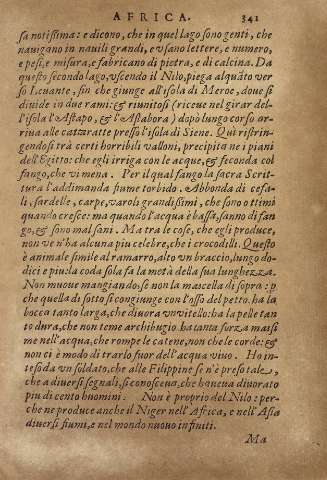 AFRICA. 341
sa notissima: e dicono, che in quel lago sono genti, che
nauigano in nauili grandi, e vsano lettere, e numero,
e pesi, e misura, e fabricano di pietra, e di calcina. Da
questo secondo lago, vscendo il Nilo, piega alquāto ver
so Leuante, fin che giunge all'isola di Meroe, doue si
diuide in due rami: & riunitosi (riceue nel girar del-
l'isola l'Astapo, & l'Astabora) dopò lungo corso ar-
riua alle cattaratte presso l'isola di Siene. Qui ristrin-
gendosi trà certi horribili valloni, precipita ne i piani
dell'Egitto: che egli irriga con le acque, & feconda col
fango, che vi mena. Per il qual fango la sacra Scrit-
tura l'addimanda fiume torbido. Abbonda di cefa-
li, sardelle, carpe, varoli grandissimi, che sono ottimi
quando cresce: ma quando l'acqua è bassa, sanno di fan-
go, & sono mal sani. Ma tra le cose, che egli produce,
non ve n'ha alcuna piu celebre, che i crocodilli. Questo
è animale simile al ramarro, alto vn braccio, lungo do-
dici e piu: la coda sola fa la metà della sua lunghezza.
Non muoue mangiando, se non la mascella di sopra: p̲
che quella di sotto si congiunge con l'osso del petto. ha la
bocca tanto larga, che diuora vn vitello: ha la pelle tan
to dura, che non teme archibugio. ha tanta forza massi
me nell'acqua, che rompe le catene, non che le corde: &
non ci è modo di trarlo fuor dell'acqua viuo. Ho in-
teso da vn soldato, che alle Filippine se n'è preso tale,
che a diuersi segnali, si conosceua, che haueua diuorato
piu di cento huomini. Non è proprio del Nilo: per-
che ne produce anche il Niger nell'Africa, e nell'Asia
diuersi fiumi, e nel mondo nuouo infiniti.
Ma